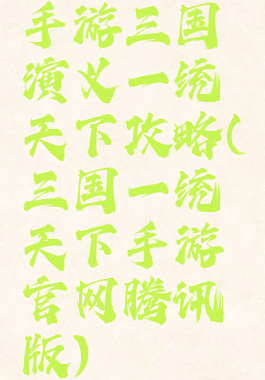 手游三国
演义一统
天下攻略(
三国一统
天下手游
官网腾讯
版)